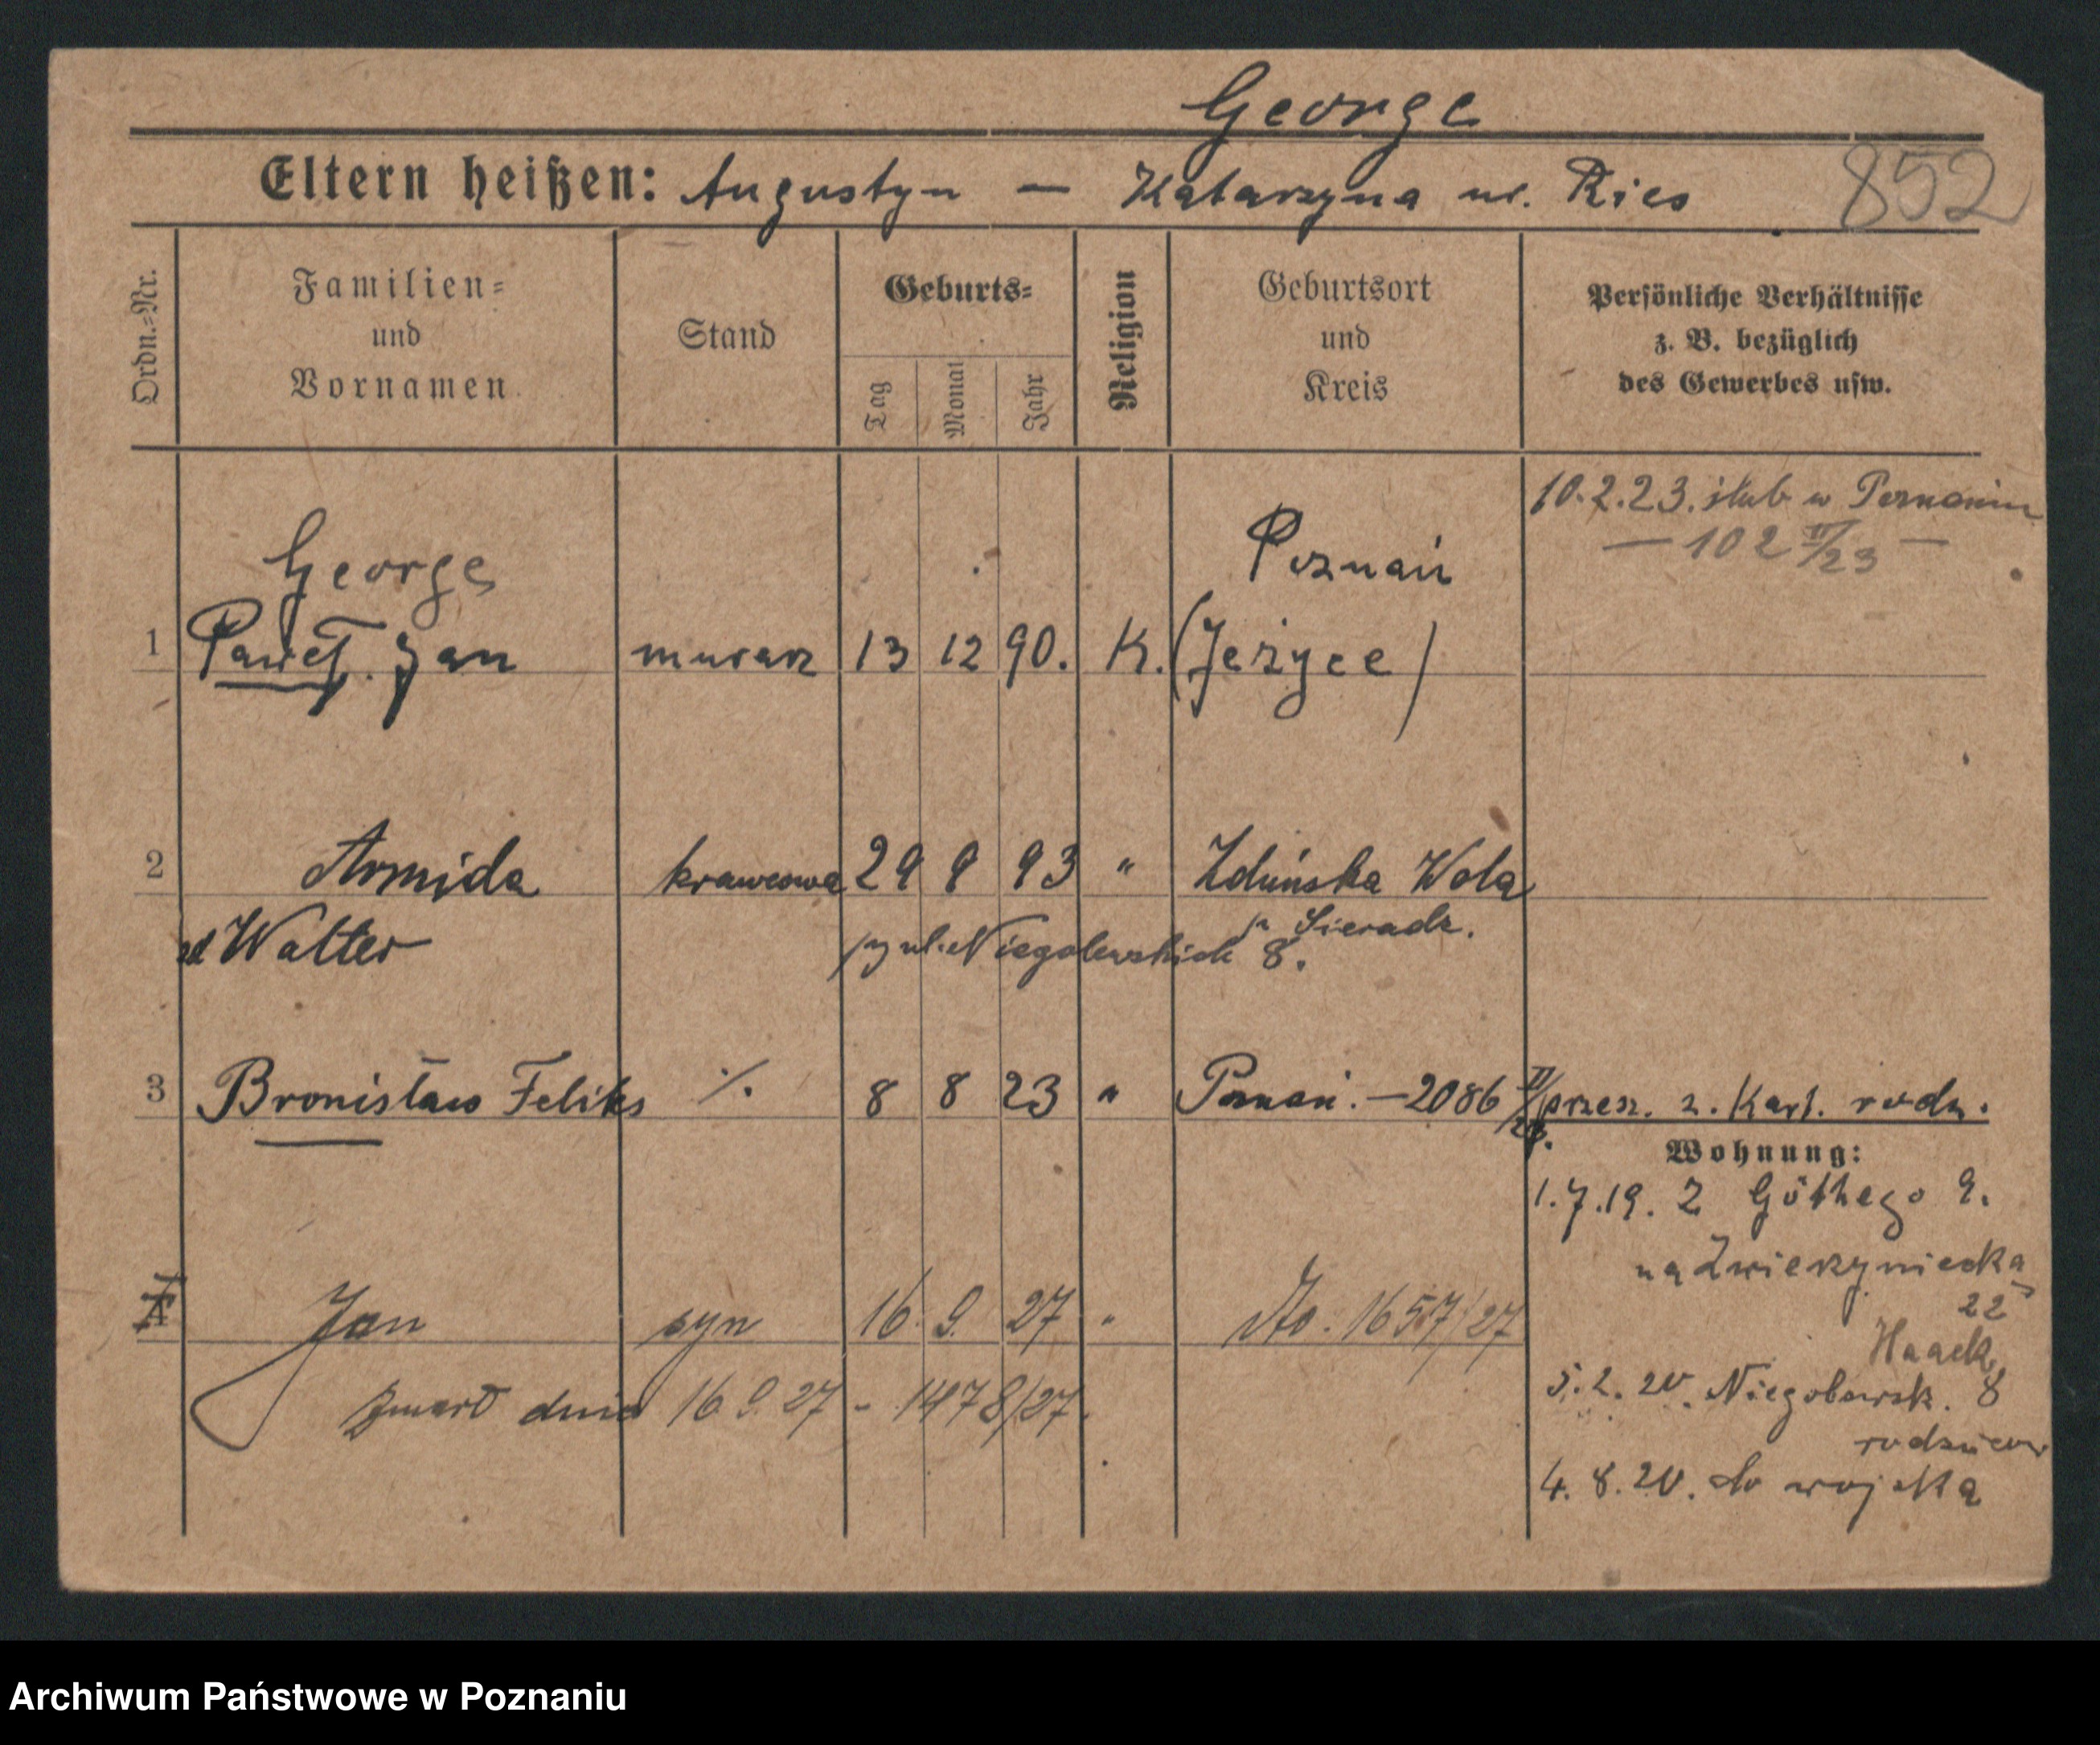 George
Eltern heißen: Augustyn — Katarzyna ur. Ries
852
Ordn.=Nr.
Familien=
und
Vornamen
Stand
Geburts=
Tag
Monat
Jahr
Religion
Geburtsort
und
Kreis
Persönliche Verhältnisse
z. B. bezüglich
des Gewerbes usw.
10.2.23. ślub w Poznaniu
— 102 II/23 —
George
Poznań
1 Paweł Jan murarz 13 12 90. K. (Jeżyce)
2 Armida krawcowa 29 9 93 " Zduńska Wola
p. Sieradz.
zd Walter
ul. Niegolewskich 8.
3 Bronisław Feliks ·/. 8 8 23 " Poznań. — 2086 II/23. przen. z. Kart. rodz.
Wohnung:
1.7.19. Z Göthego 9.
na Zwierzyniecka
22
Haack
5.2.20. Niegolewsk. 8
rodziców
4.8.20. do wojska
4 Jan syn 16 9. 27 " No. 1657/27
zmarł dnia 16 9 27 - 1478/27.
Archiwum Państwowe w Poznaniu